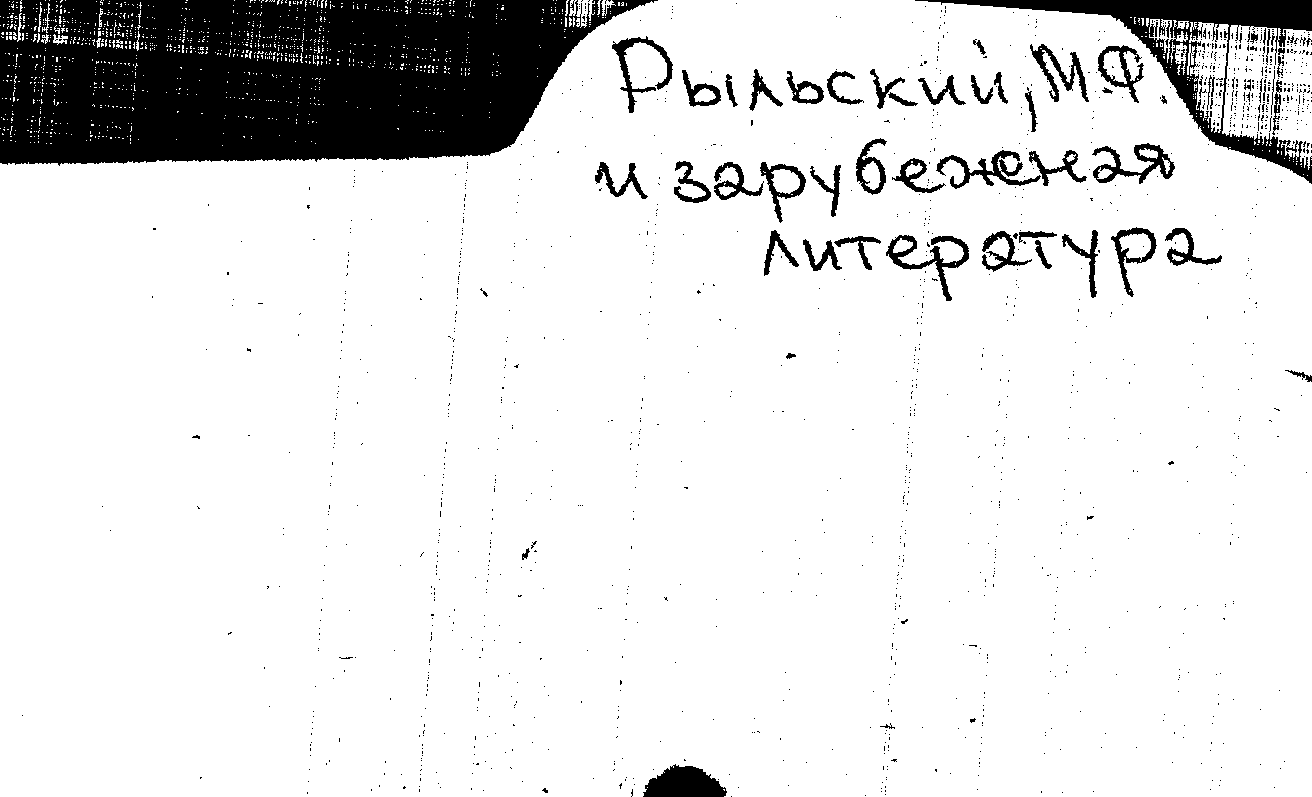 Рыльский, М.Ф.
и зарубежная
литература